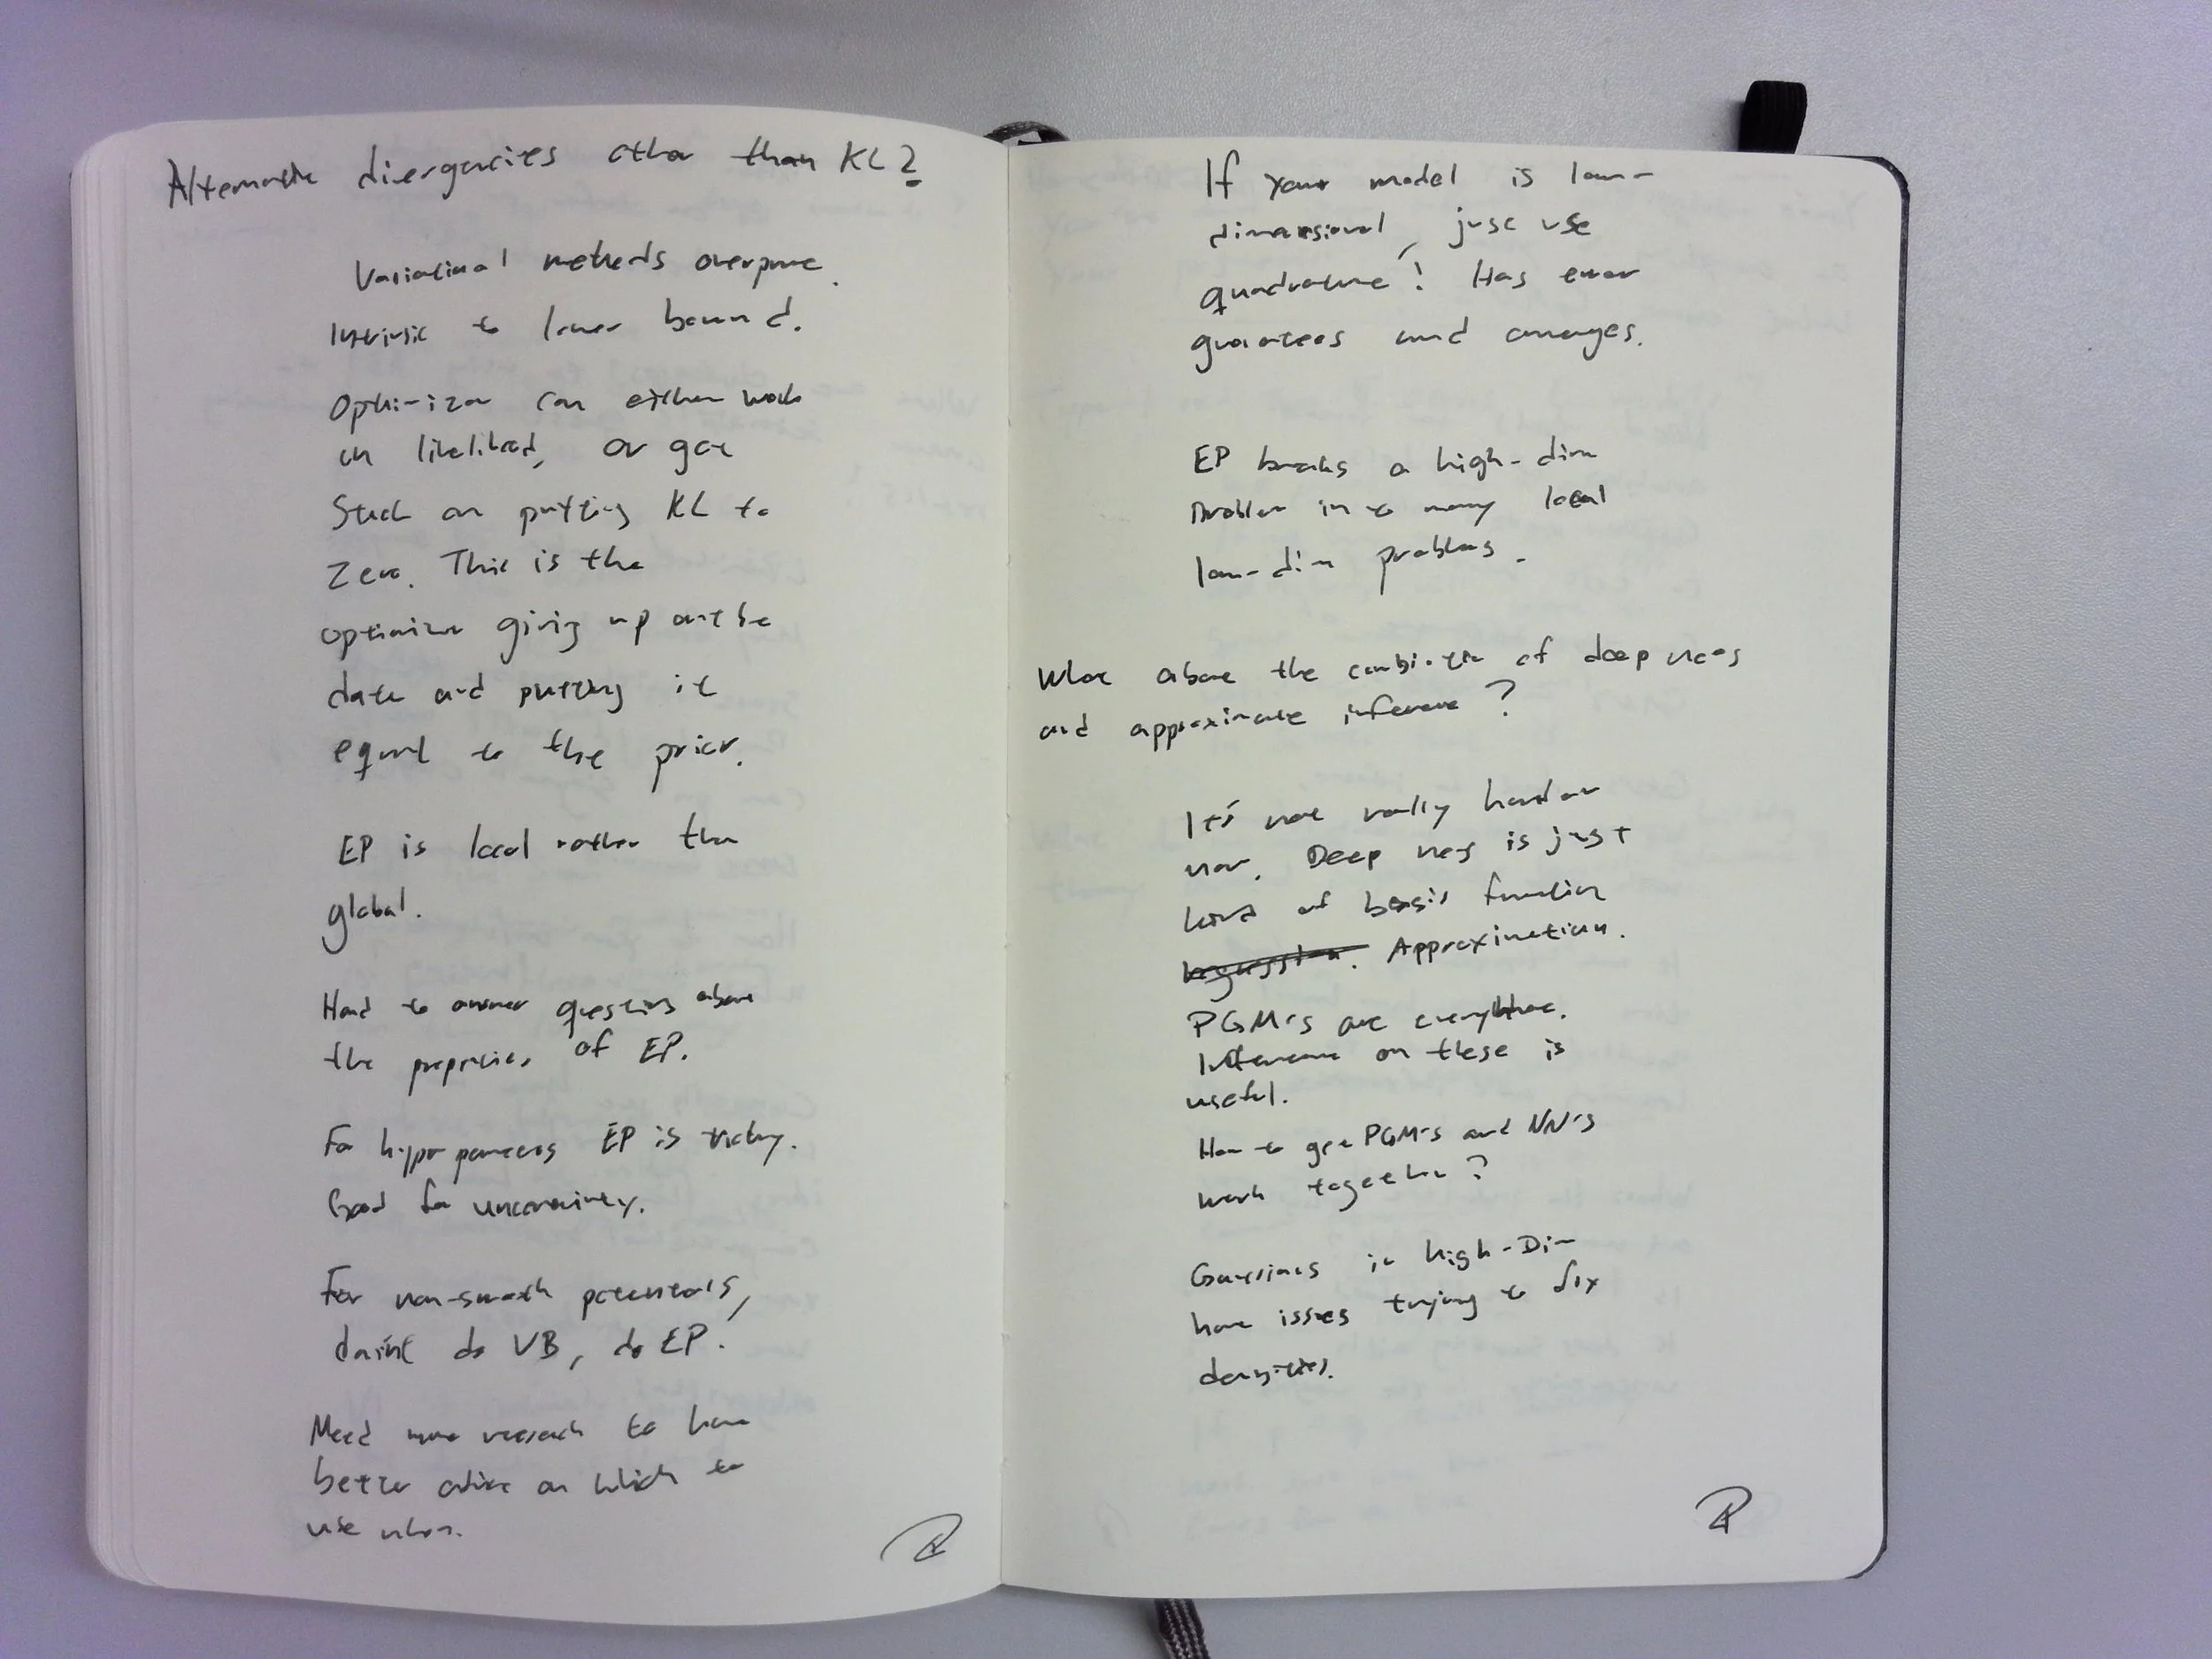 Alternate divergencies other than KL?
Variational methods overprune.
Intrinsic to lower bound.
Optimizer can either work
on likelihood, or get
stuck on putting KL to
zero. This is the
optimizer giving up on the
data and putting it
equal to the prior.
EP is local rather than
global.
Hard to answer questions about
the properties of EP.
For hyperparameters EP is tricky.
Good for uncertainty.
For non-smooth potentials,
don't do VB, do EP.
Need more research to have
better advice on which to
use when.
If your model is low-
dimensional, just use
quadrature! Has error
guarantees and
EP breaks a high-dim
problem into many local
low-dim problems.
What about the combination of deep nets
and approximate inference?
It's not really harder
now. Deep nets is just
kind of basis function
regression. Approximation.
PGM's are everywhere.
Inference on these is
useful.
How to get PGM's and NN's
work together?
Gaussians in high-Dim
have issues trying to fix
densities.